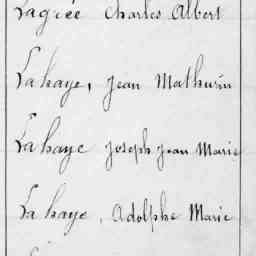 Lagrée Charles Albert
Lahaye, Jean Mathurin
Lahaye Joseph Jean Marie
Lahaye, Adolphe Marie